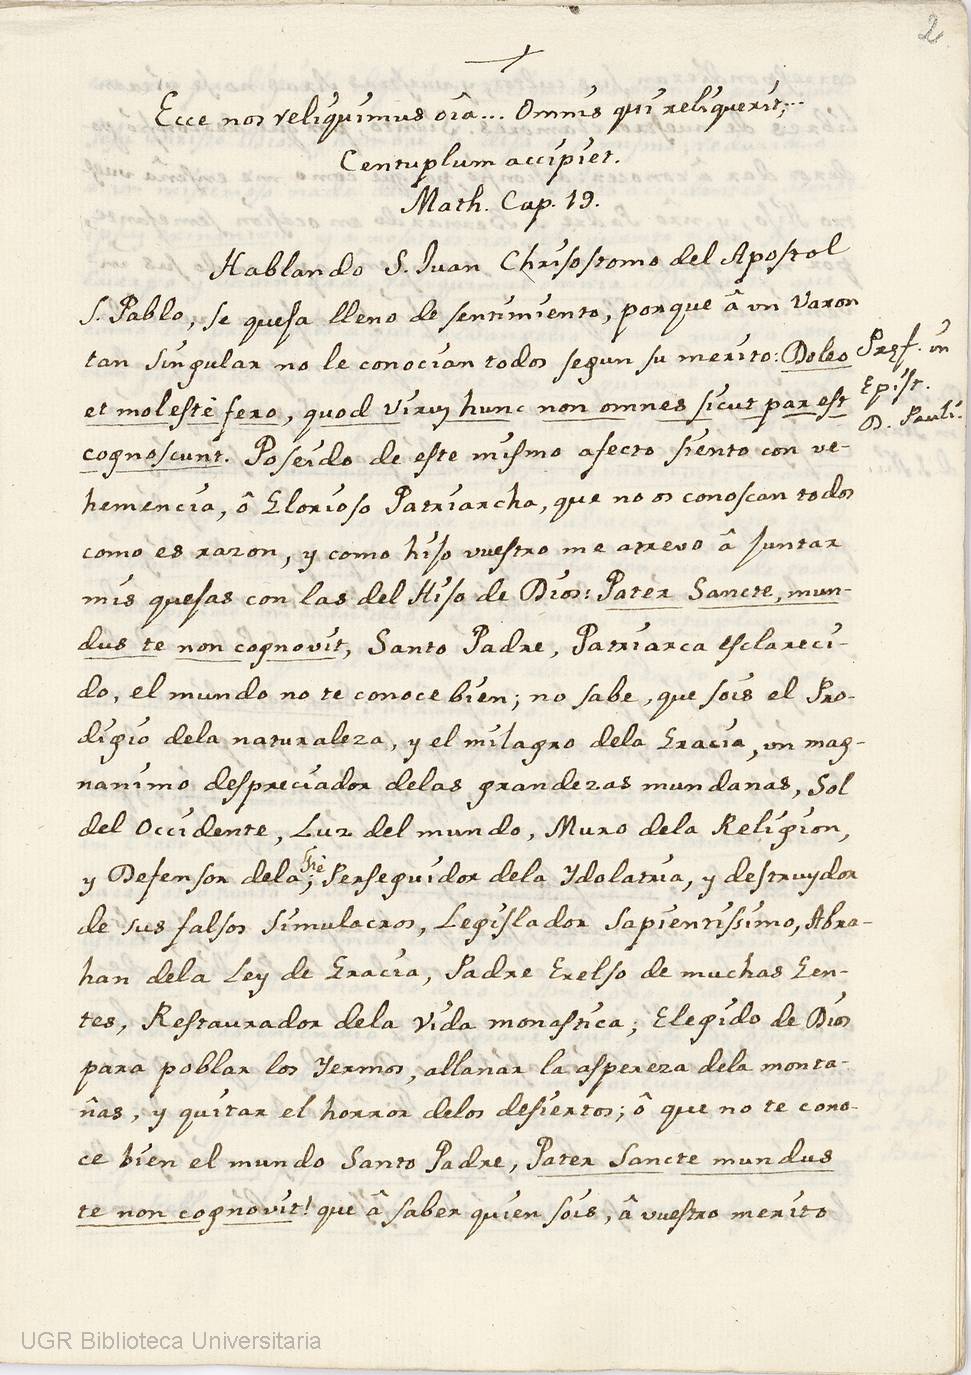 2
Ecce nos reliquimus oîa... Omnis qui reliquerit,...
Centuplum accipiet.
Math. Cap. 19.
Hablando S. Juan Chrisostomo del Apostol
S. Pablo, se quesa lleno de sentimiento, porque â vn Varon
tan singular no le conocian todos segun su merito: Doleo
et molestè fero, quod virum hunc non omnes sicut par est
cognoscunt. Poseido de este mismo afecto siento con ve-
hemencia, ô Glorioso Patriarcha, que no os conoscan todos
como es razon, y como hiso vuestro me atrevo â juntar
mis quesas con las del Hiso de Dios: Pater Sancte, mun-
dus te non cognovit, Santo Padre, Patriarca esclareci-
do, el mundo no te conoce bien; no sabe, que sois el Pro-
digio dela naturaleza, y el milagro dela Gracia, un mag-
nanimo despreciador delas grandezas mundanas, Sol
del Occidente, Luz del mundo, Muro dela Religion,
y Defensor dela Fiè, Perseguidor dela Ydolatria, y destruydor
de sus falsos simulacros, Legislador sapientissimo, Abra-
han dela Ley de Gracia, Padre Exelso de muchas Gen-
tes, Restaurador dela Vida monastica; Elegido de Dios
para poblar los Yermos, allanar la aspereza dela monta-
ñas, y quitar el horror delos desiertos; ô que no te cono-
ce bien el mundo Santo Padre, Pater Sancte mundus
te non cognovit! que â saber quien sois, â vuestro merito
Pręf. in
Epist.
D. Pauli.
UGR Biblioteca Universitaria